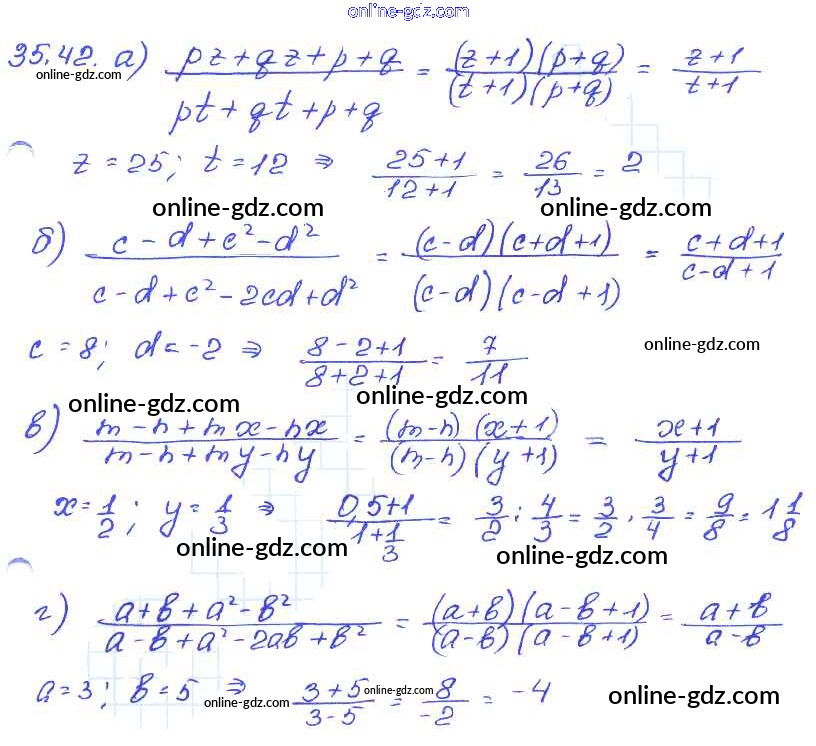 online-gdz.com
35.42. а) (pz+qz+p+q)/(pt+qt+p+q) = ((z+1)(p+q))/((t+1)(p+q)) = (z+1)/(t+1)
online-gdz.com
z = 25; t = 12 ⇒ (25+1)/(12+1) = 26/13 = 2
online-gdz.com online-gdz.com
б) (c-d+c²-d²)/(c-d+c²-2cd+d²) = ((c-d)(c+d+1))/((c-d)(c-d+1)) = (c+d+1)/(c-d+1)
c = 8; d = -2 ⇒ (8-2+1)/(8+2+1) = 7/11
online-gdz.com
online-gdz.com online-gdz.com
в) (m-n+mx-nx)/(m-n+my-ny) = ((m-n)(x+1))/((m-n)(y+1)) = (x+1)/(y+1)
x = 1/2; y = 1/3 ⇒ (0,5+1)/(1+1/3) = 3/2 : 4/3 = 3/2 · 3/4 = 9/8 = 1 1/8
online-gdz.com online-gdz.com
г) (a+b+a²-b²)/(a-b+a²-2ab+b²) = ((a+b)(a-b+1))/((a-b)(a-b+1)) = (a+b)/(a-b)
a = 3; b = 5 ⇒ (3+5)/(3-5) = 8/-2 = -4
online-gdz.com online-gdz.com online-gdz.com